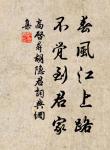 春風江上路
不覺到君家
高啓尋胡隱君詞典網
集